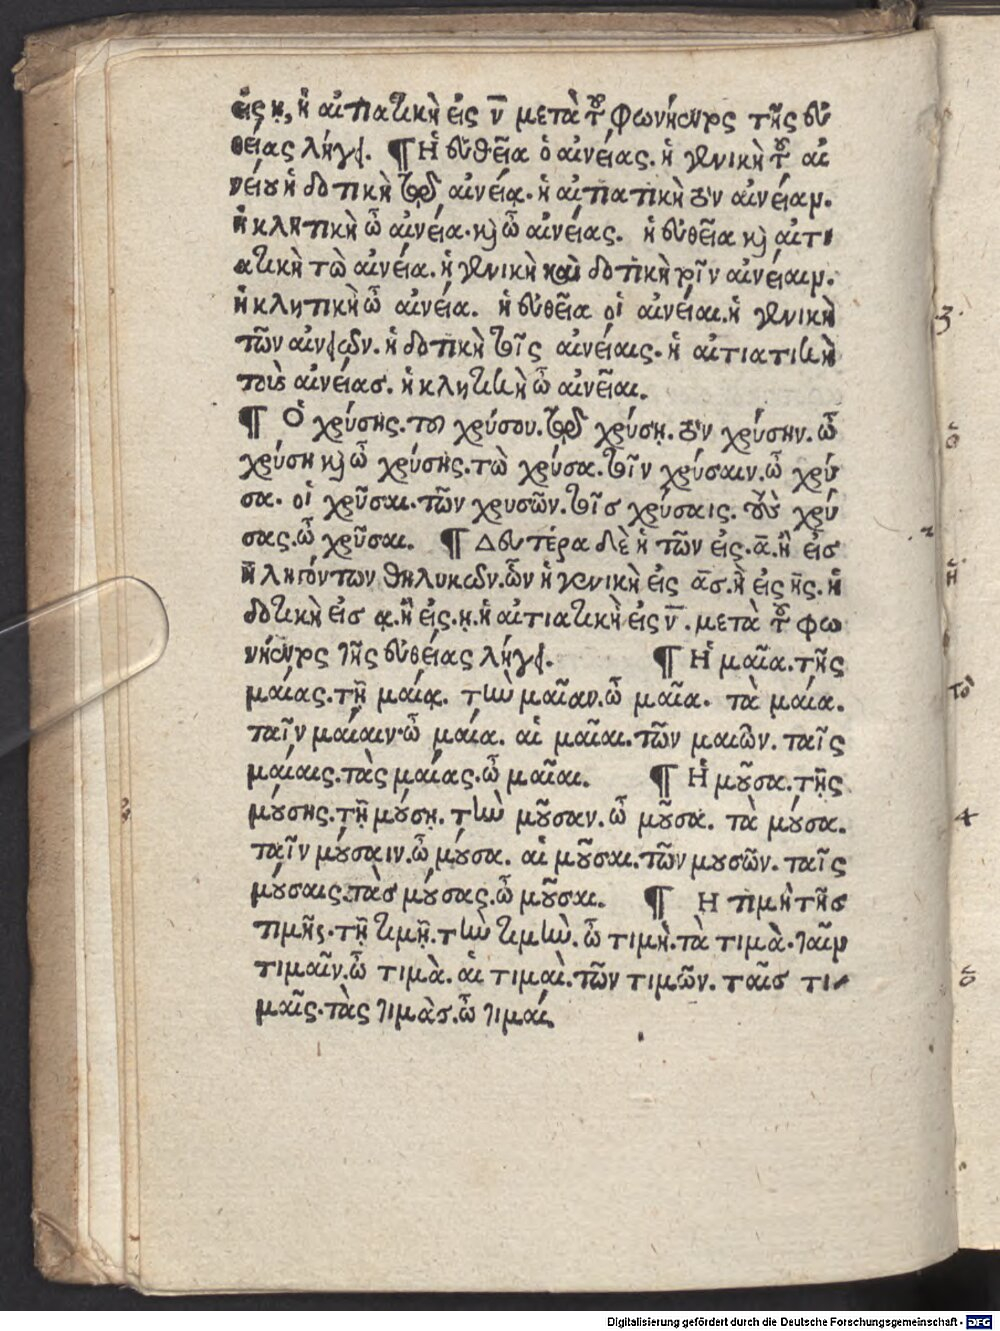 εἰς ῃ, ἡ αἰτιατικὴ εἰς ν̄ μετὰ τοῦ φωνήεντος τῆς εὐ
θείας λήγει. ¶ Ἡ εὐθεῖα ὁ αἰνείας. ἡ γενικὴ τοῦ αἰ
νείου ἡ δοτικὴ τῷ αἰνείᾳ. ἡ αἰτιατικὴ τὸν αἰνείαν.
ἡ κλητικὴ ὦ αἰνεία. καὶ ὦ αἰνείας. ἡ εὐθεῖα καὶ αἰτι
ατικὴ τὼ αἰνεία. ἡ γενικὴ καὶ δοτικὴ τοῖν αἰνείαιν.
ἡ κλητικὴ ὦ αἰνεία. ἡ εὐθεῖα οἱ αἰνείαι. ἡ γενικὴ
τῶν αἰνειῶν. ἡ δοτικὴ τοῖς αἰνείαις. ἡ αἰτιατικὴ
τοὺς αἰνείας. ἡ κλητικὴ ὦ αἰνεῖαι.
¶ Ὁ χρύσης. του χρύσου. τῷ χρύσῃ. τὸν χρύσην. ὦ
χρύση καὶ ὦ χρύσης. τὼ χρύσα. τοῖν χρύσαιν. ὦ χρύ
σα. οἱ χρῦσαι. τῶν χρυσῶν. τοῖς χρύσαις. τοὺς χρύ
σας. ὦ χρῦσαι. ¶ Δευτέρα δὲ ἡ τῶν εἰς. ᾱ. ἢ εἰς
η̄ ληγόντων θηλυκῶν. ὧν ἡ γενικὴ εἰς ᾱς. ἢ εἰς η̄ς. ἡ
δοτικὴ εἰς ᾳ. ἢ εἰς. ῃ. ἡ αἰτιατικὴ εἰς ν̄. μετὰ τοῦ φω
νήεντος τῆς εὐθείας λήγει. ¶ Ἡ μαῖα. τῆς
μαίας. τῇ μαίᾳ. τὴν μαῖαν. ὦ μαῖα. τὰ μαία.
ταῖν μαίαιν. ὦ μαία. αἱ μαῖαι. τῶν μαιῶν. ταῖς
μαίαις. τὰς μαίας. ὦ μαῖαι. ¶ Ἡ μοῦσα. τῆς
μούσης. τῇ μούσῃ. τὴν μοῦσαν. ὦ μοῦσα. τὰ μούσα.
ταῖν μούσαιν. ὦ μούσα. αἱ μοῦσαι. τῶν μουσῶν. ταῖς
μούσαις. τὰς μούσας. ὦ μοῦσαι. ¶ Η τιμὴ τῆς
τιμῆς. τῇ τιμῇ. τὴν τιμὴν. ὦ τιμὴ. τὰ τιμὰ. ταῖν
τιμαῖν. ὦ τιμὰ. αἱ τιμαὶ. τῶν τιμῶν. ταῖς τι-
μαῖς. τὰς τιμὰς. ὦ τιμαί.
Digitalisierung gefördert durch die Deutsche Forschungsgemeinschaft - DFG